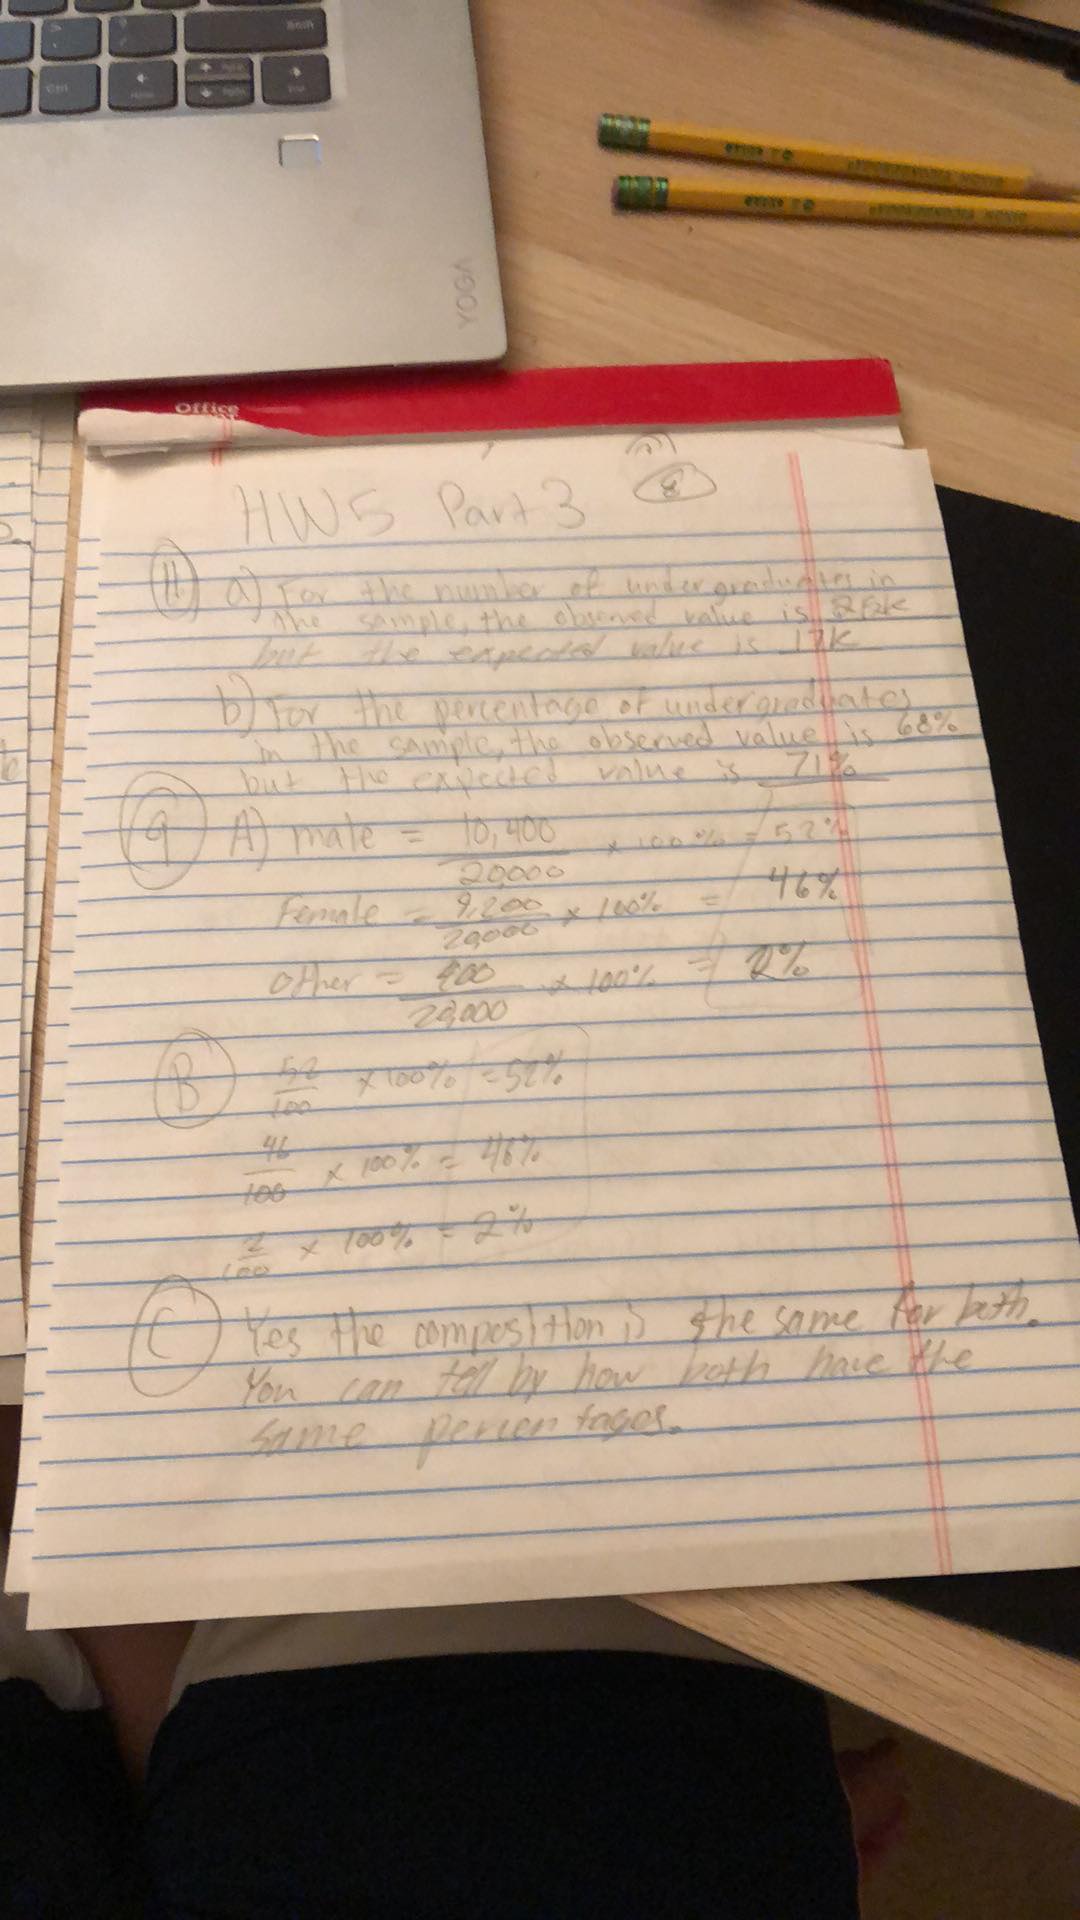 YOGA
Office
HW5 Part 3
8
11. a) For the number of undergraduates in
the sample, the observed value is
but the expected value is 17K
b) For the percentage of undergraduates
in the sample, the observed value is 68%
but the expected value is 71%
9 A) male = 10,400 / 20,000 × 100% = 52%
Female = 9,200 / 20,000 × 100% = 46%
other = 400 / 20,000 × 100% = 2%
B 52/100 × 100% = 52%
46/100 × 100% = 46%
2/100 × 100% = 2%
C Yes the composition is the same for both.
You can tell by how both have the
same percentages.